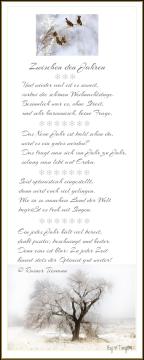 Zwischen den Jahren
Und wieder mal ist es soweit,
vorbei die schönen Weihnachtstage.
Besinnlich war es, ohne Streit,
und sehr harmonisch, keine Frage.
Das Neue Jahr ist bald schon da,
wird es ein gutes werden?
Das fragt man sich von Jahr zu Jahr,
solang man lebt auf Erden.
Seid optimistisch eingestellt,
dann wird euch viel gelingen.
Wie es so mancher Land der Welt
begrüßt es froh mit Singen.
Ein jedes Jahr hält viel bereit,
denkt positiv, beschwingt und heiter.
Denn eins ist klar: Zu jeder Zeit
kommt stets der Optimist gut weiter!
© Rainer Tiemann